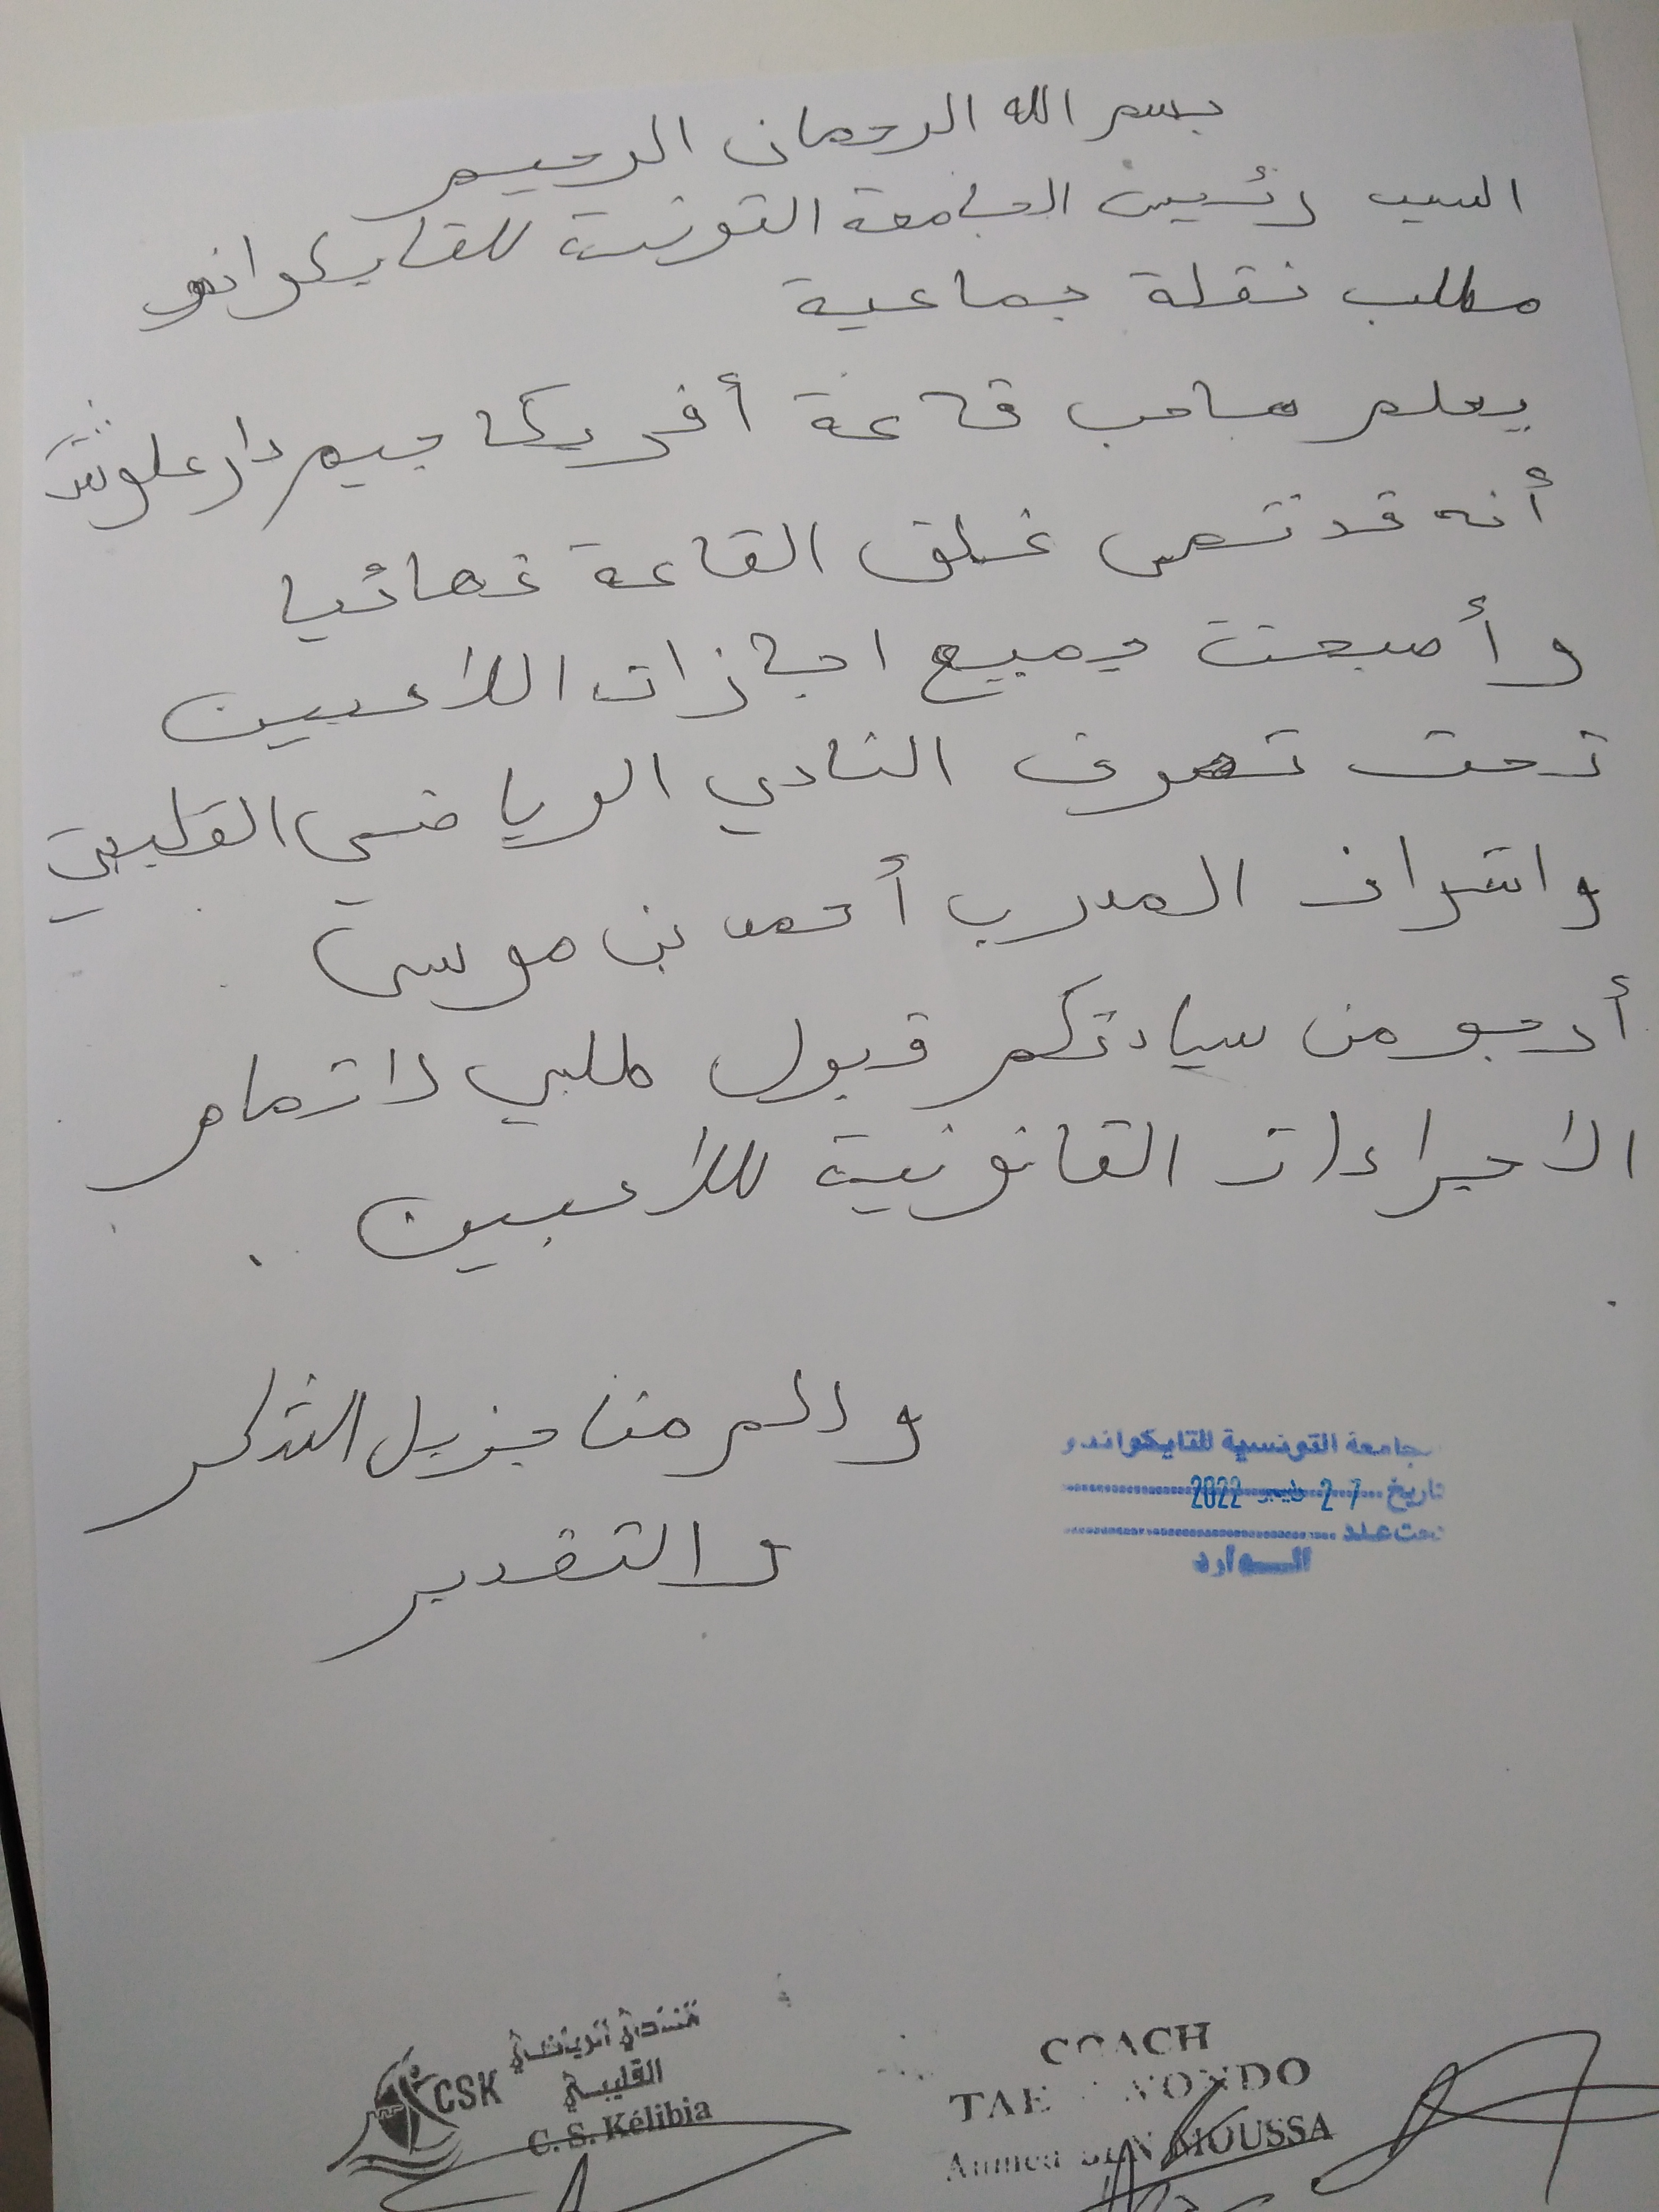 بسم الله الرحمان الرحيم
السيد رئيس الجامعة التونسية للتايكواندو
مطلب نقلة جماعية
يعلم صاحب قاعة أفريكا جيم دار علوش
أنه قد تم غلق القاعة نهائيا
و أصبحت جميع اجازات اللاعبين
تحت تصرف النادي الرياضي القليبي
واشراف المدرب أحمد بن موسى
أرجو من سيادتكم قبول طلبي لاتمام
الاجراءات القانونية للاعبين .
و لكم منا جزيل الشكر
و التقدير
جامعة التونسية للتايكواندو
تاريخ 27 2022
تحت عدد
الــوارد
الرياضي
القليبي
CSK
C. S. Kélibia
COACH
TAE WONDO
Ahmed BEN MOUSSA